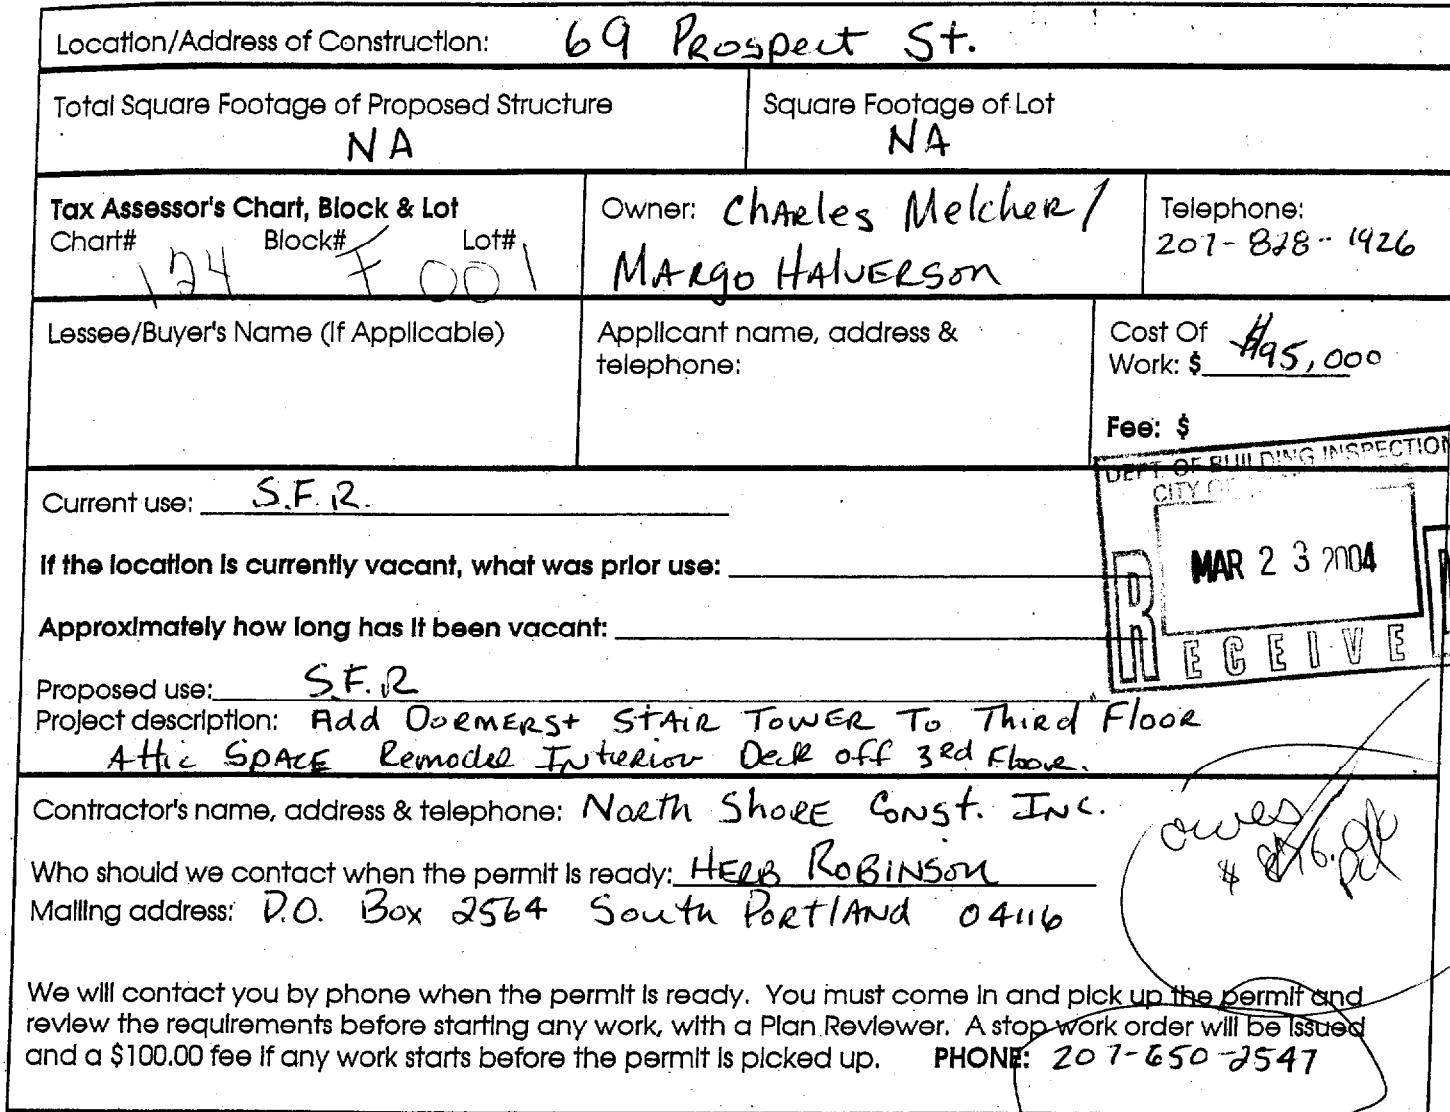 Location/Address of Construction: 69 Prospect St.
Total Square Footage of Proposed Structure
NA
Square Footage of Lot
NA
Tax Assessor's Chart, Block & Lot
Chart# Block# Lot#
124 F 001
Owner: Charles Melcher /
Margo Halverson
Telephone:
207-828-1926
Lessee/Buyer's Name (If Applicable)
Applicant name, address &
telephone:
Cost Of
Work: $ $95,000
Fee: $
DEPT. OF BUILDING INSPECTION
CITY OF
MAR 23 2004
RECEIVE
Current use: S.F.R.
If the location is currently vacant, what was prior use:
Approximately how long has it been vacant:
Proposed use: S.F.R
Project description: Add Dormers + Stair Tower To Third Floor
Attic Space Remodel Interior Deck off 3rd Floor.
Contractor's name, address & telephone: North Shore Const. Inc.
owes
$
pd
Who should we contact when the permit is ready: Herb Robinson
Mailing address: P.O. Box 2564 South Portland 04116
We will contact you by phone when the permit is ready. You must come in and pick up the permit and
review the requirements before starting any work, with a Plan Reviewer. A stop work order will be issued
and a $100.00 fee if any work starts before the permit is picked up. PHONE: 207-650-2547